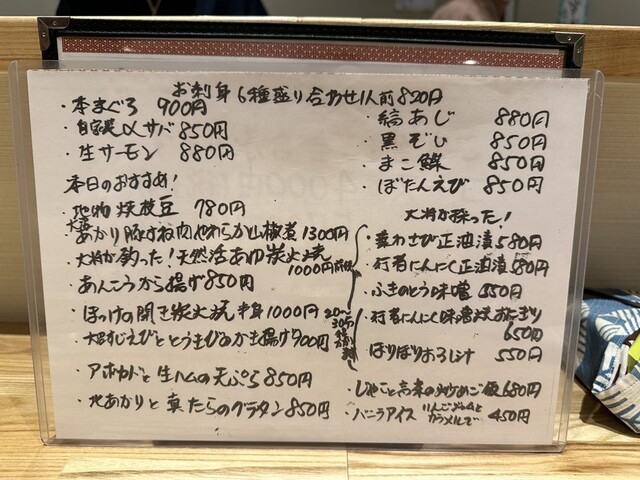 お刺身6種盛り合わせ1人前820円
・本まぐろ 900円
・自家製〆サバ 850円
・生サーモン 880円
・縞あじ 880円
・黒ぞい 850円
・まこ鰈 850円
・ぼたんえび 850円
本日のおすすめ!
・地物 焼枝豆 780円
・あかり豚すね肉やわらか山椒煮 1300円
・大将が釣った!天然活あゆ炭火焼
1000円
・あんこうから揚げ 850円
・ほっけの開き炭火焼 半身 1000円
20〜
30分
・大正えびととうきびのかき揚げ 900円
・アボカドと生ハムの天ぷら 850円
・地あかりと真たらのグラタン 850円
大将が採った!
・葉わさび正油漬 580円
・行者にんにく正油漬 580円
・ふきのとう味噌 550円
・行者にんにく味噌焼おにぎり
650円
・ぽりぽりおろし汁 550円
・じゃこと高菜の炒めご飯 680円
・バニラアイス りんごジャムと
カラメルで 450円